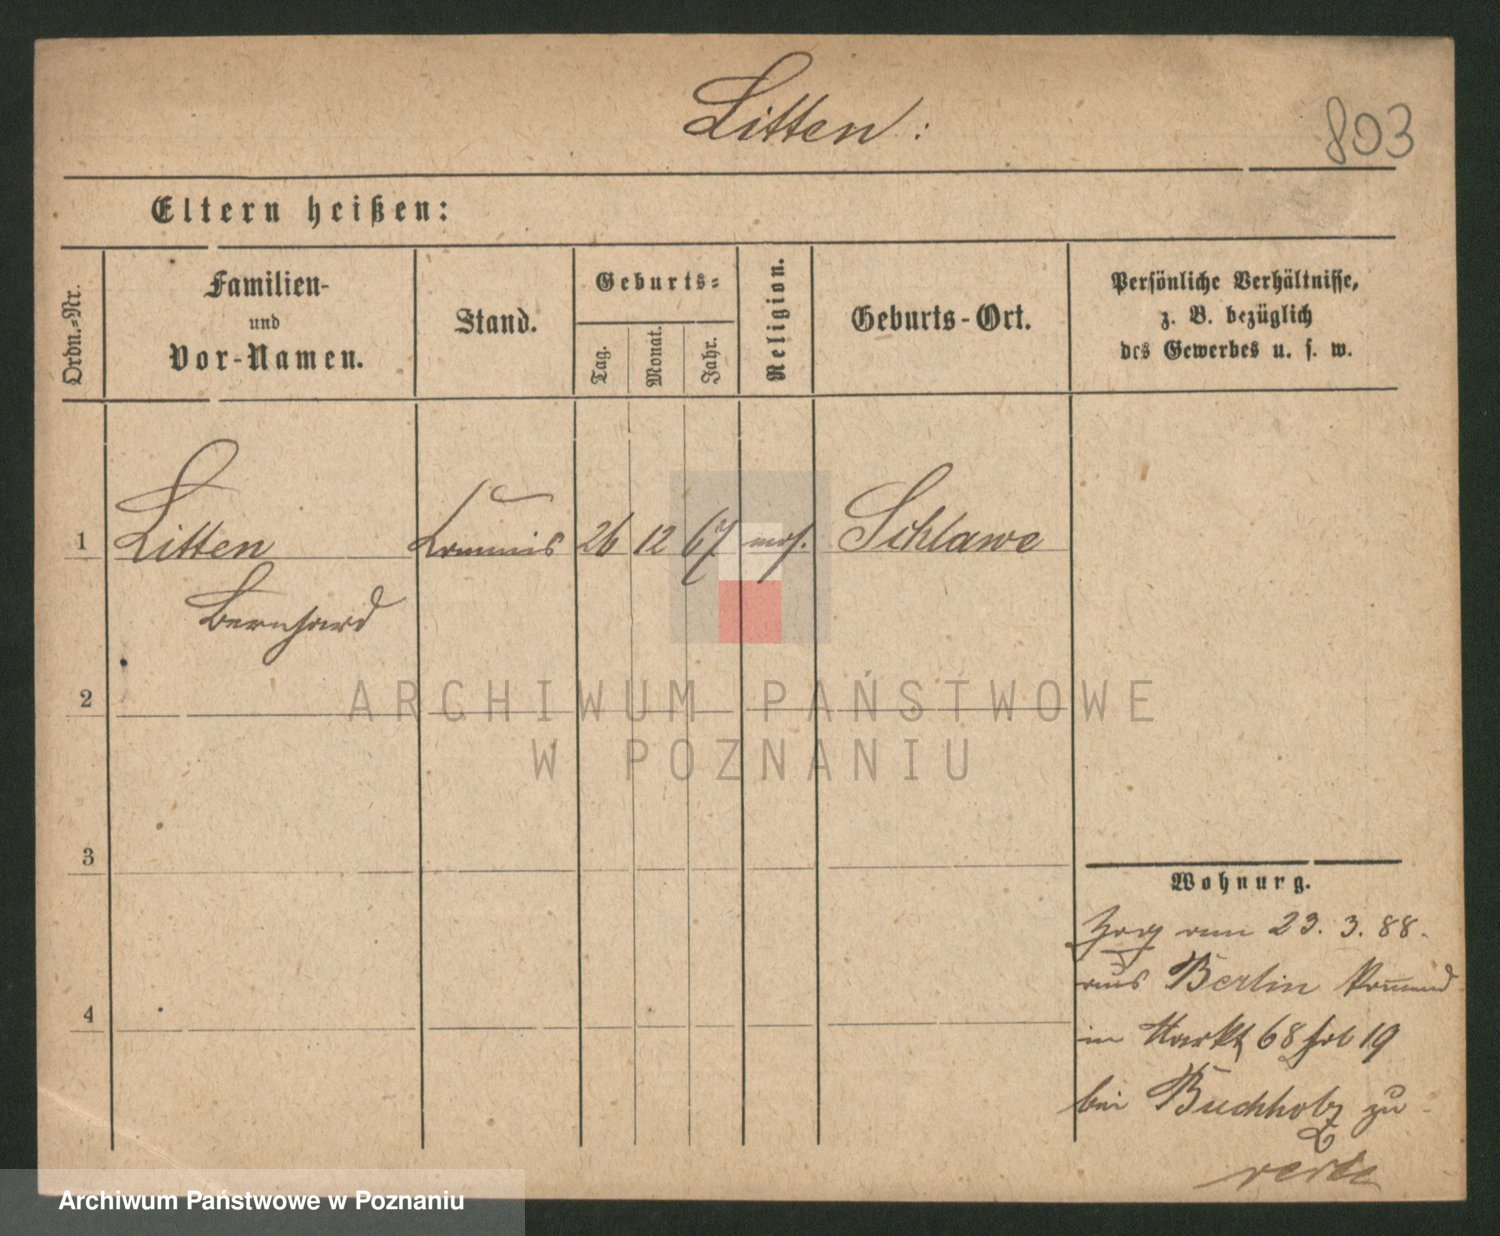 Litten:
803
Eltern heißen:
Ordn.=Nr.
Familien-
und
Vor-Namen.
Stand.
Geburts=
Tag.
Monat.
Jahr.
Religion.
Geburts-Ort.
Persönliche Verhältnisse,
z. B. bezüglich
des Gewerbes u. s. w.
1 Litten Commis 26 12 67 mos. Schlawe
Bernhard
2
ARCHIWUM PAŃSTWOWE
W POZNANIU
3
4
Wohnung.
Zog am 23. 3. 88.
aus Berlin kommend
in Markt 68
bei Buchholz zu
verte
Archiwum Państwowe w Poznaniu